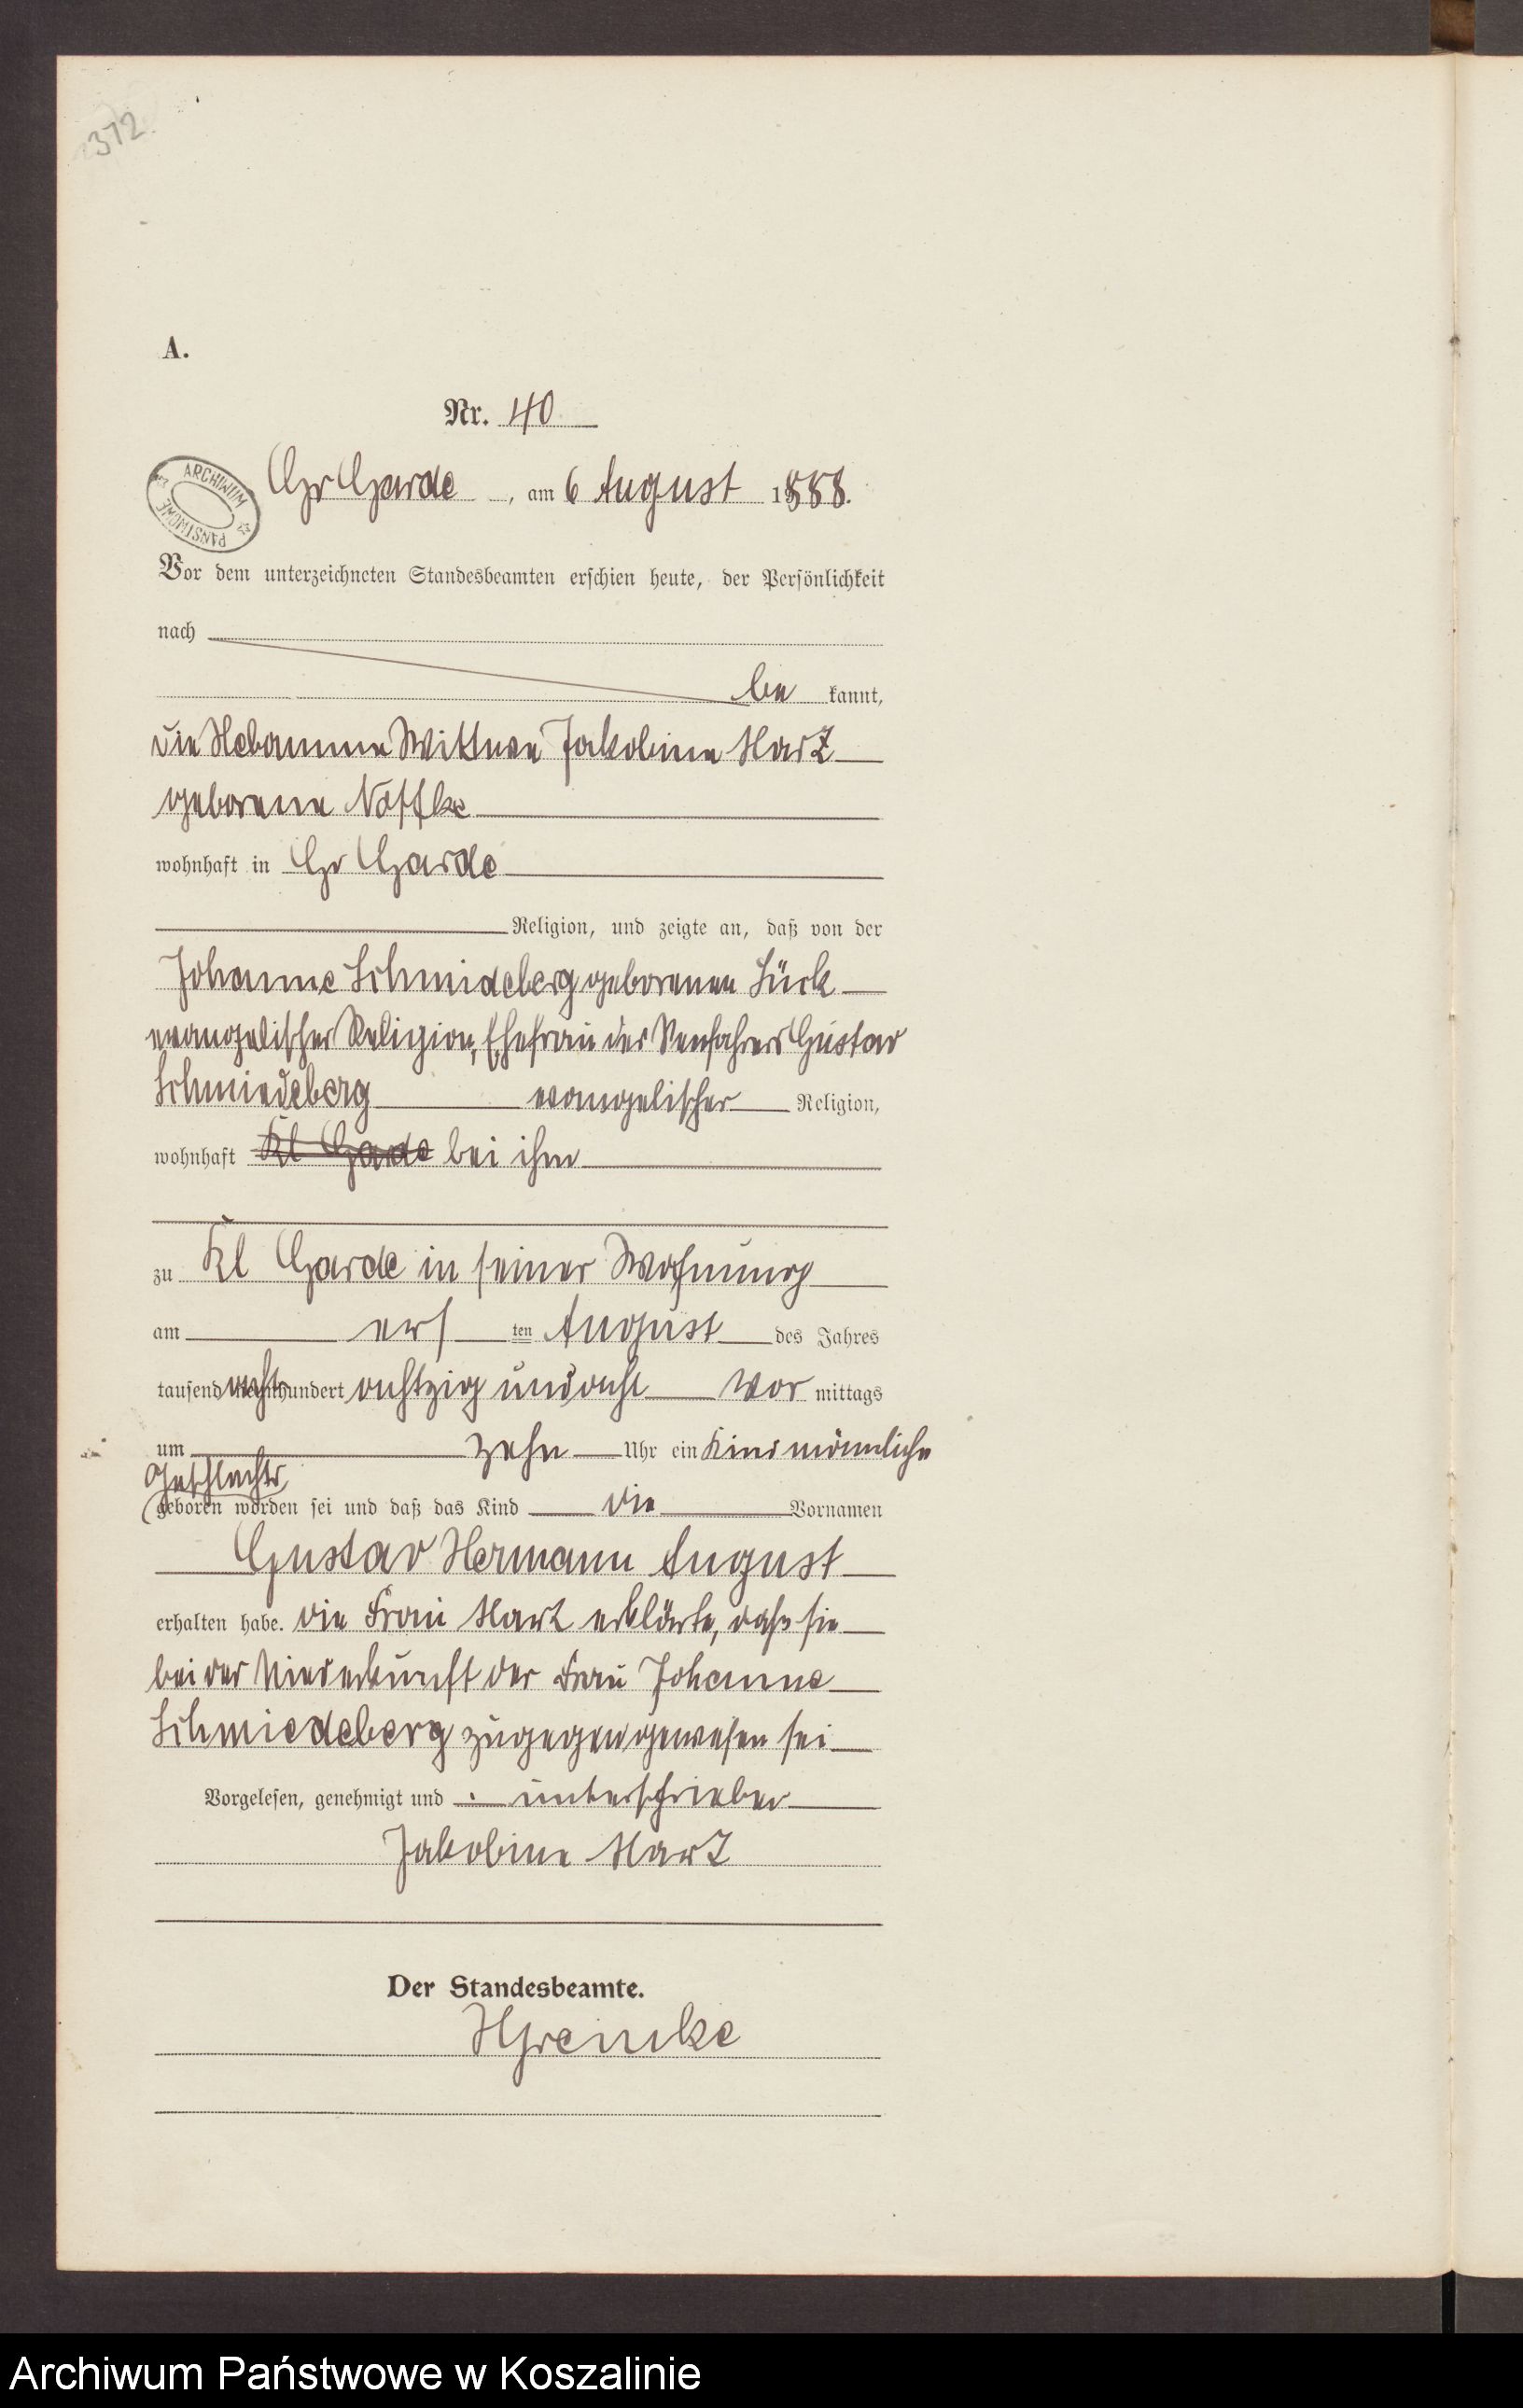 372.
A.
Nr. 40
ARCHIWUM PAŃSTWOWE
Gr Garde, am 6 August 1888.
Vor dem unterzeichneten Standesbeamten erschien heute, der Persönlichkeit
nach
be kannt,
die Hebamme Wittwe Jakobine Hartz
geborene Noffke
wohnhaft in Gr Garde
Religion, und zeigte an, daß von der
Johanne Schmideberg geborenen Lück
evangelischer Religion, Ehefrau des Gustav
Schmiedeberg evangelischer Religion,
wohnhaft Kl Garde bei ihm
zu Kl Garde in seiner Wohnung
am ers ten August des Jahres
tausend achthundert achtzig und acht Vor mittags
um zehn Uhr ein Kind männliche
Geschlechts
geboren worden sei und daß das Kind die Vornamen
Gustav Hermann August
erhalten habe. Die Frau Hartz erklärte, daß sie
bei der Niederkunft der Frau Johanne
Schmiedeberg zugegen gewesen sei
Vorgelesen, genehmigt und unterschrieben
Jakobine Hartz
Der Standesbeamte.
Archiwum Państwowe w Koszalinie